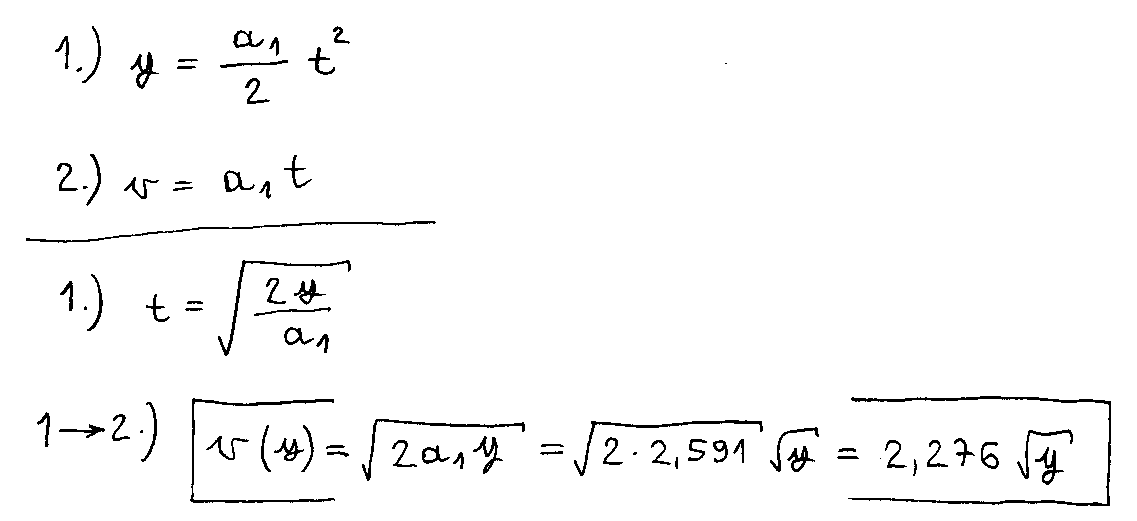 1.) y = a₁/2 t²
2.) v = a₁ t
1.) t = √(2y/a₁)
1→2.) v(y) = √(2a₁y) = √(2·2,591) √y = 2,276 √y